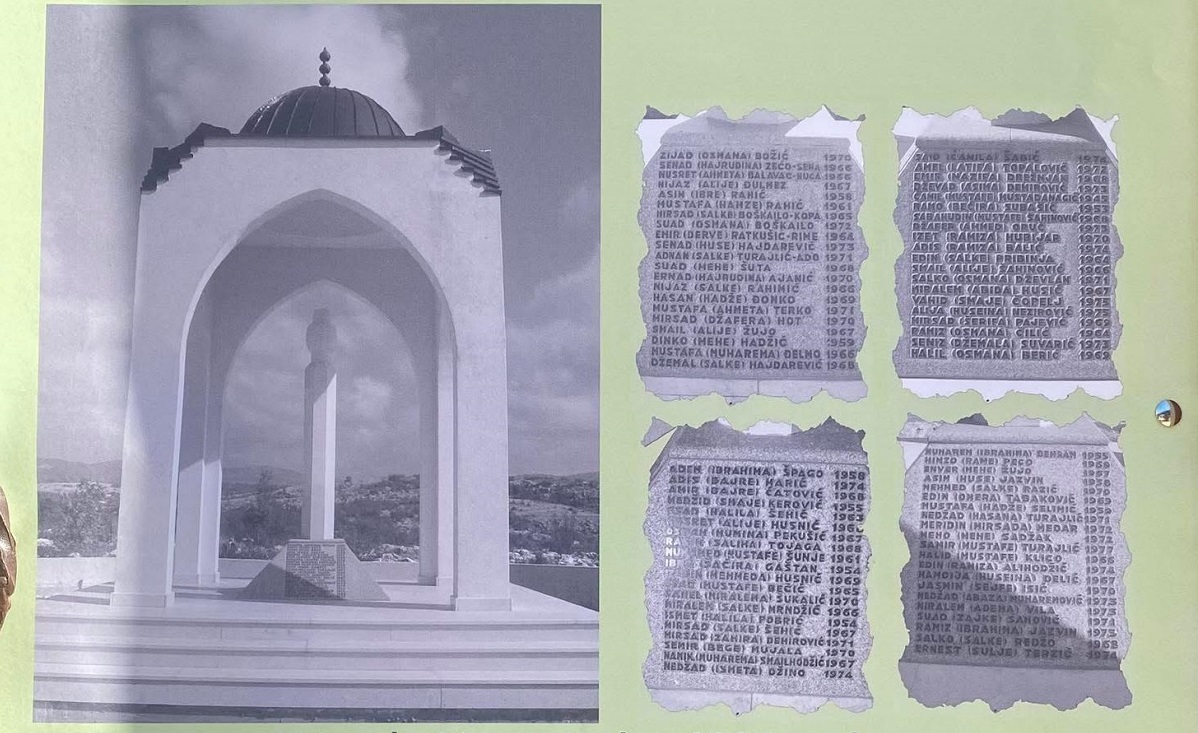 ZIJAD (OSMANA) BOŽIĆ 1970
SENAD (HAJRUDINA) ZEĆO-SENA 1966
NUSRET (AHMETA) BALAVAC-NUCA 1966
NIJAZ (ALIJE) DULHEZ 1967
ASIM (IBRE) RAHIĆ 1958
MUSTAFA (HAMZE) RAHIĆ 1961
MIRSAD (SALKE) BOŠKAILO-KOPA 1965
SUAD (OSMANA) BOŠKAILO 1972
EMIR (DERVE) RATKUŠIC-RIME 1964
SENAD (HUSE) HAJDAREVIĆ 1973
ADNAN (SALKE) TURAJLIĆ-ADO 1971
SUAD (MEHE) ŠUTA 1968
ERNAD (HAJRUDINA) AJANIĆ 1970
NIJAZ (SALKE) RAHIMIĆ 1966
HASAN (HADŽE) ĐONKO 1969
MUSTAFA (AHMETA) TERKO 1971
MIRSAD (DŽAFERA) HOT 1970
SMAIL (ALIJE) ŽUJO 1967
DINKO (MEHE) HADŽIĆ 1959
MUSTAFA (MUHAREMA) ĐELMO 1966
DŽEMAL (SALKE) HAJDAREVIĆ 1968
ZAID (ĆAMILA) ŠABIĆ 1974
TOPALOVIĆ 1972
1968
DŽEVAD (ASIMA) DEMIROVIĆ
RAMO (BEĆIRA) SUBAŠIĆ 1953
SABAHUDIN (MUSTAFE) ŠAHINOVIĆ
DŽAFER (AHMEDA) ORUČ
(RAMZA) HUBIJAR
ADIS (RAMZA) BALIĆ 1974
EDIN (SALKE) RIBINJA
SMAIL (ALIJE) ŠAHINOVIĆ
SALKO (OSMANA) DŽEVLAN 1971
MIRALEM (ABIDA) HUSIĆ 1967
VAHID (SMAJE) ĆOPELJ
ALIJA (HUSEINA) NEZIROVIĆ 1973
MIRSAD (ŠERIFA) FAJEVIĆ 1969
RAMIZ (OSMANA) ČILIĆ 1964
SENIZ (DŽEMALA) SUVARIĆ 1973
HALIL (OSMANA) BERIĆ 1969
ADEM (IBRAHIMA) ŠPAGO 1958
ADIS (BAJRE) MARIĆ 1974
AMIR (BAJRE) ĆATOVIĆ 1968
NEDZID (SMAJE) KEROVIĆ 1955
(HALILA) ŠEHIĆ 1963
(ALIJE) HUSNIĆ
(MUMINA) PEKUŠIĆ 1967
(SALIHA) TOJAGA 1968
(MUSTAFE) ŠUNJE 1961
(SAĆIRA) GAŠTAN 1954
(MEHMEDA) HUSNIĆ 1969
(MUSTAFE) BEĆIĆ 1965
(MIRALEMA) SUKALIĆ 1970
MIRALEM (SALKE) MRNDŽIĆ 1966
ISMET (HALILA) POBRIĆ 1954
MIRSAD (SALKE) ŠEHIĆ 1967
MIRSAD (ZAHIRA) DEMIROVIĆ 1971
SEMIR (BEGE) MUJALA 1970
NANIK (MUHAREMA) SMAILHODŽIĆ 1967
NEDŽAD (ISMETA) DŽINO 1974
MUHAREM (IBRAHIMA) DEHRAN 1955
HIMZO (RAME) PEČO 1969
ENVER (MEHE) ŽUJO 1957
ASIM (HUSE) JAZVIN 1968
MEHMED (SALKE) RAZIĆ 1970
EDIN (OMERA) TABAKOVIĆ 1969
MUSTAFA (HADŽE) SELIMIĆ 1959
NEDŽAD (HASANA) TURAJLIĆ
MERIDIN (MIRSADA) MEDAR 1971
MEHO (MEHE) SADŽAK 1973
SAMIR (MUSTAFE) TURAJLIĆ 1971
HALID (MUSTAFE) KLICO 1968
EDIN (RAMIZA) ALIHODŽIĆ 1973
HAMDIJA (HUSEINA) DELIĆ 1967
JASMIN (SEJFE) ISIĆ
NEDŽAD (ABAZA) MUHAREMOVIĆ 1975
MIRALEM (ADEMA) VILA
SUAD (ZAJKE) SAHOVIĆ
RAMIZ (IBRAHIMA) JAZVIN 1973
SALKO (SALKE) REDŽO 1968
ERNEST (SULJE) TERZIĆ 1974